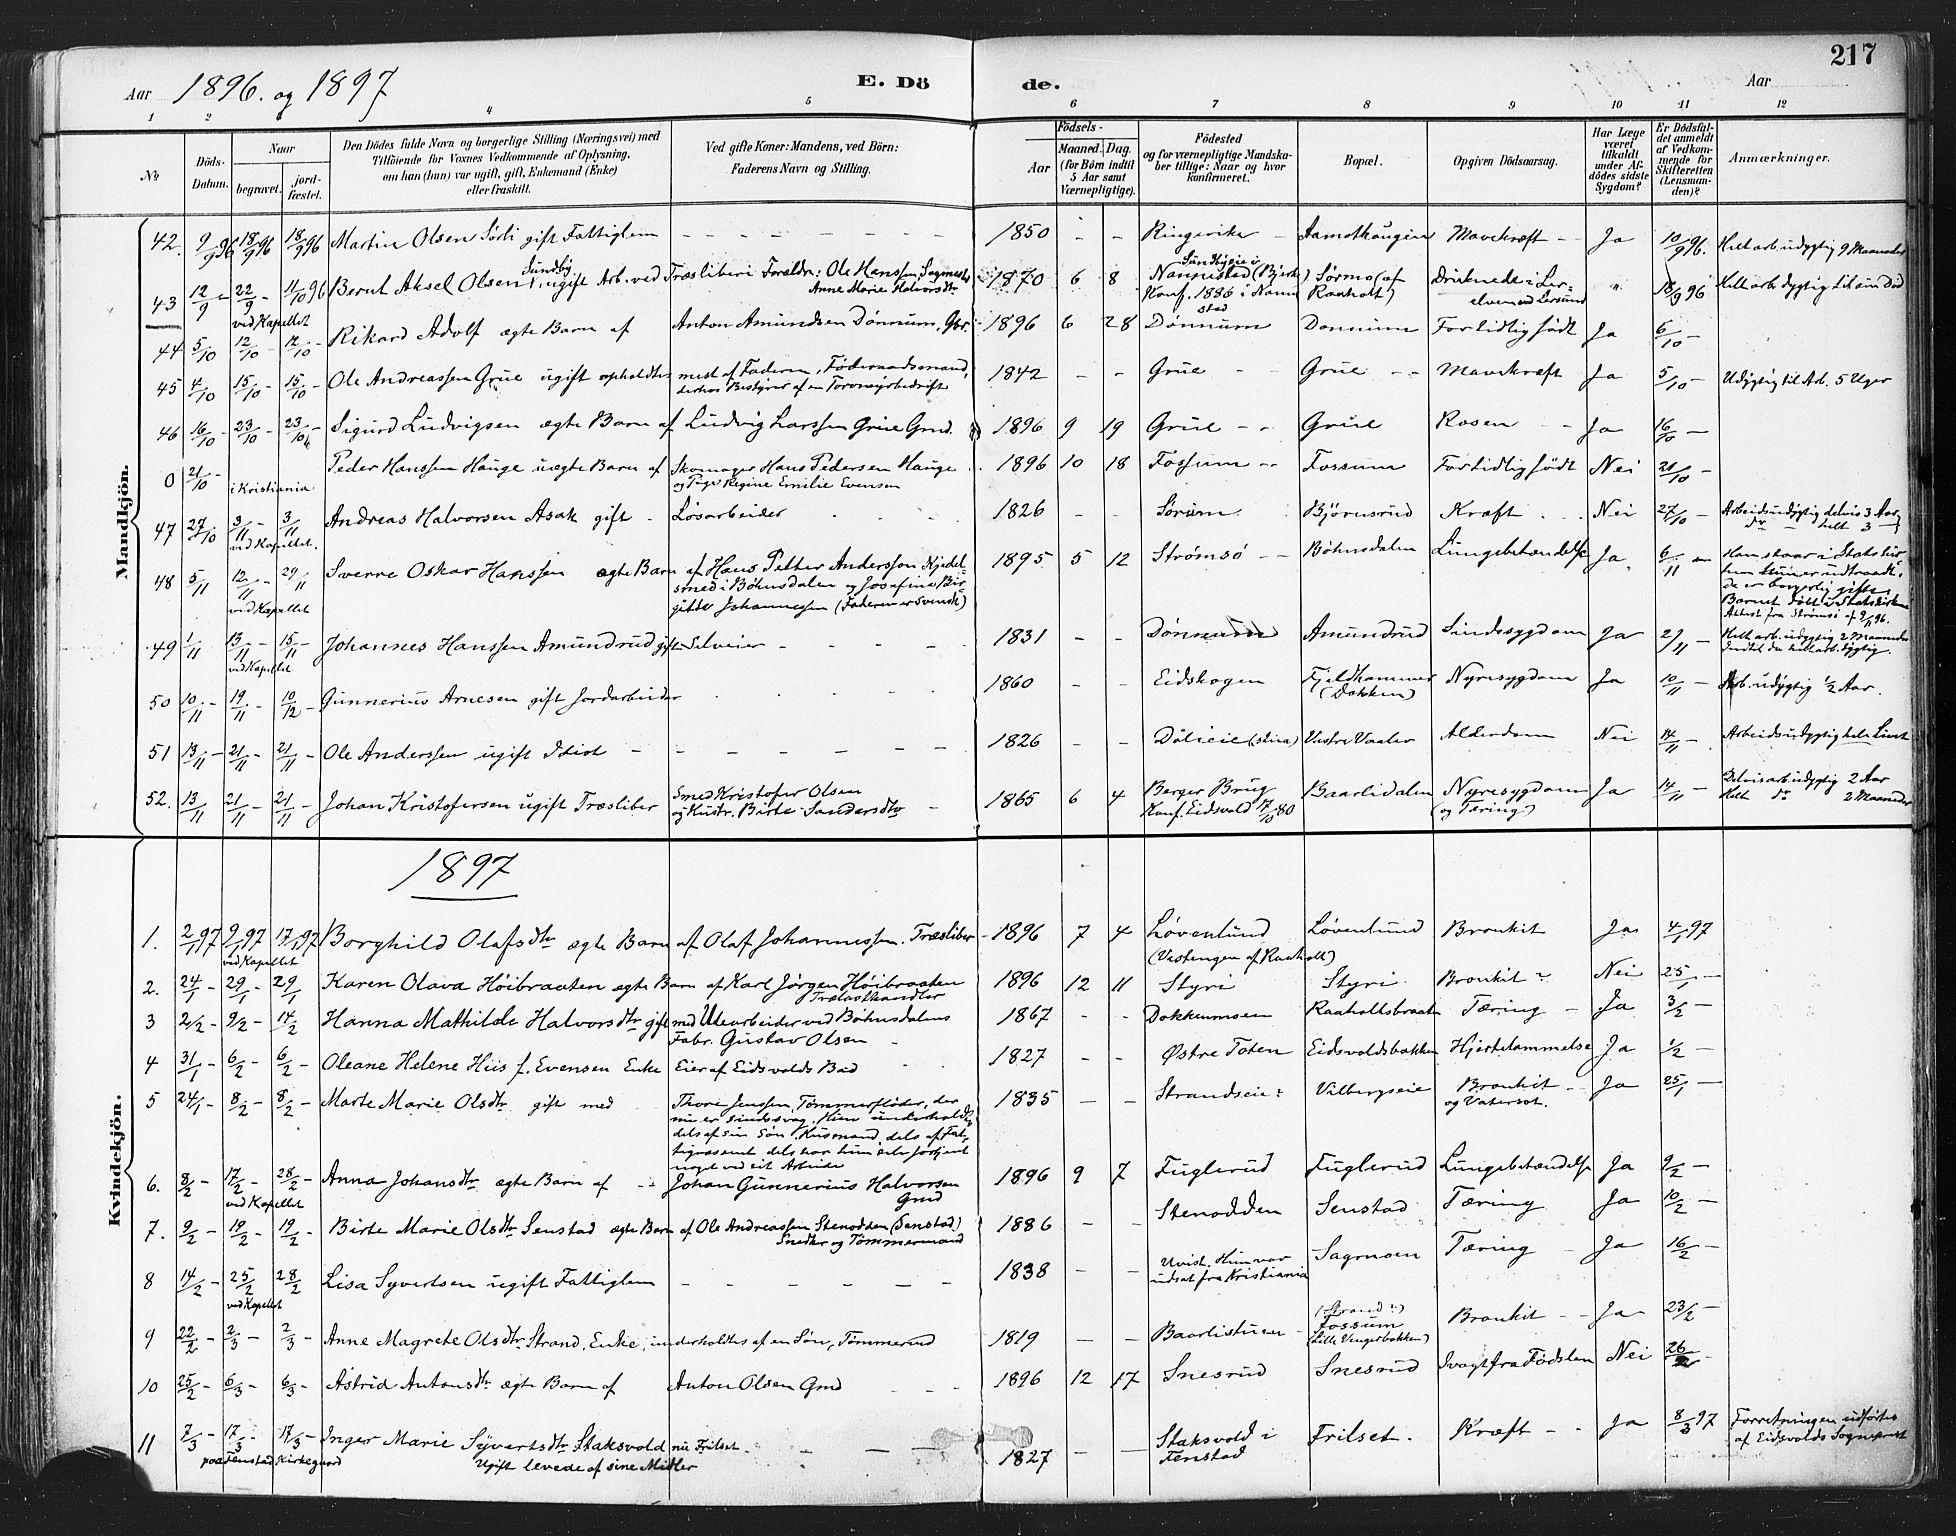 217
Aar 1896. og 1897
E. Döde.
Aar
1 2 3 4 5 6 7 8 9 10 11 12
No
Döds-Datum.
Naar
begravet.
jordfæstet.
Den Dödes fulde Navn og borgerlige Stilling (Næringsvei) med Tilføiende for Voxnes Vedkommende af Oplysning, om han (hun) var ugift, gift, Enkemand (Enke) eller fraskilt.
Ved gifte Koner: Mandens, ved Börn: Faderens Navn og Stilling.
Födsels-
Aar
Maaned. Dag. (for Börn indtil 5 Aar samt Værnepligtige).
Födested og for værnepligtige Mandskaber tillige: Naar og hvor konfirmeret.
Bopæl.
Opgiven Dödsaarsag.
Har Læge været tilkaldt under Afdödes sidste Sygdom?
Er Dödsfaldet anmeldt af Vedkommende for Skifteretten (Lensmanden)?
Anmærkninger.
Mandkjön.
42. 9/9 96 18/9 96 18/9 96 Martin Olsen Sörli gift Fattiglem 1850 Ringerike Aamothaugen Mavekræft Ja 10/9 96. Helt arb.udygtig 9 Maaneder
43 12/9 22/9 ved Kapellet 11/10 96 Bernt Aksel Olsen Sundby, ugift Arb. ved Træsliberi Foreldre: Ole Hanssen, Anne Marie Halvorsdtr 1870 6 8 Sundbyeie i Nannestad (Bjerke) Konf. 1886 i Nannestad Sörmo (af Raaholt) Druknede i 18/9 96 Helt arb.dygtig til sin Död
44 5/10 12/10 12/10 Rikard Adolf ægte Barn af Anton Amundsen Dönnum, Gbr. 1896 6 28 Dönnum Donnum For tidlig födt Ja 6/10
45 4/10 15/10 15/10 Ole Andreassen Grue ugift opholdtes mest af Faderen, Föderaadsmand, derhos Bestyrer af en Torvmyrbedrift 1842 Grue Grue Mavekræft Ja 5/10 Udygtig til Arb. 5 Uger
46 16/10 23/10 23/10 Sigurd Ludvigsen ægte Barn af Ludvig Larssen Grue Gmd. 1896 9 19 Grue Grue Rosen Ja 16/10
0 21/10 i Kristiania Peder Hanssen Hauge uægte Barn af Skomager Hans Pedersen Hauge og Pige Regine Emilie Evensen 1896 10 18 Fossum Fossum For tidlig födt Nei 21/10
47 27/10 3/11 ved Kapellet. 3/11 Andreas Halvorsen Asak gift Løsarbeider 1826 Sörum Björnsrud Kræft Nei 27/10 Arbeidsudygtig delvis 3 Aar do helt 3
48 5/11 12/11 ved Kapellet 29/11 Sverre Oskar Hanssen ægte Barn af Hans Petter Anderssen Kjedelsmed i Böhnsdalen og Josefina Birgitte Johannessen (Faderen er Svensk) 1895 5 12 Strömsö Böhnsdalen Lungebetændelse Ja. 6/11 Han staar i Statskir hun udtraadt, de er borgerlig gifte. Barnet döbt i Statskirken Attest fra Strömsö af 9/11 96.
49 1/11 13/11 ved Kapellet 15/11 Johannes Hanssen Amundrud gift Selveier 1831 Dönnum Amundrud Sindssygdom Ja 2/11 Helt arb.udygtig 2 Maaneder Indtil da helt arb.dygtig.
50 10/11 19/11 10/12 Gunnerius Arnesen gift Jordarbeider 1860 Eidskogen Fjeldhammer (Dokken) Nyresygdom Ja 10/11 Arb.udygtig 1/2 Aar.
51 13/11 21/11 21/11 Ole Anderssen ugift Idiot 1826 Dölieie Vestre Vaaler Alderdom Nei 14/11 Arbeidsudygtig hele Livet
52. 13/11 21/11 21/11 Johan Kristofersen ugift Træsliber Smed Kristofer Olsen og Hustr. Birte Sandersdtr 1865 6 4 Berger Brug Konf. Eidsvold 17/10 80 Baarlidalen Nyresygdom (og Tæring) Ja 14/11 Delvis arb.udygtig 2 Aar Helt do 2 Maaneder
1897
Kvindekjön.
1. 2/1 97 9/1 97 ved Kapellet 17/1 97 Borghild Olafsdtr ægte Barn af Olaf Johannessen. Træsliber 1896 7 4 Løvenlund (Vestengen af Raaholt) Lövenlund Bronkit Ja 4/1 97
2. 24/1 29/1 29/1 Karen Olava Höibraaten ægte Barn af Karl Jörgen Höibraaten Trælasthandler 1896 12 11 Styri Styri Bronkit? Nei 25/1
3 2/2 9/2 14/2 Hanna Mathilde Halvorsdtr gift med Udearbeider ved Böhnsdalens Fabr. Gustav Olsen 1867 Dokkenmoen Raaholtsbraaten Tæring Ja 3/2
4 31/1 6/2 6/2 Oleane Helene Hiis f. Evensen Enke Eier af Eidsvolds Bad 1827 Østre Toten Eidsvoldsbakken Hjertelammelse Ja 1/2
5 24/1 8/2 8/2 Marte Marie Olsdtr gift med Thore Jenssen, Tømmerfløder, der nu er sindssvag. Hun underholdtes dels af sin Søn, Husmand, dels af Fattigvæsenet dels har hun selv fortjent noget ved sit Arbeide 1835 Strandseie? Vilbergseie Bronkit og Vatersot. Ja 25/1
6. 8/2 17/2 ved Kapellet 28/2 Anna Johansdtr ægte Barn af Johan Gunnerius Halvorsen Gmd 1896 9 7 Fuglerud Fuglerud Lungebetændelse Ja 9/2
7. 9/2 19/2 19/2 Birte Marie Olsdtr Senstad ægte Barn af Ole Andreassen Stenodden (Senstad) Snedker og Tømmermand 1886 Stenodden Senstad Tæring Ja 10/2
8 14/2 25/2 ved Kapellet 28/2 Lisa Syvertsen ugift Fattiglem 1838 Uvist. Hun var udsat fra Kristiania Sagmoen Tæring Ja 16/2
9 22/2 2/3 2/3 Anne Magrete Olsdtr Strand, Enke, underholdtes af en Søn, Tömmermd 1819 Baarlistuen (Strand?) Fossum (Lille Vengerbakken) Bronkit Ja 23/2
10 25/2 6/3 6/3 Astrid Antonsdtr ægte Barn af Anton Olsen Gmd 1896 12 17 Snesrud Snesrud Svagt fra Födslen Nei 26/2
11 7/3 17/3 17/3 paa Fenstad Kirkegaard Inger Marie Syvertsdtr Staksvold nu Frilset. Ugift levede af sine Midler 1827 Staksvold i Fenstad Frilset. Kræft Ja 8/3 97 Forretningen udførtes af Eidsvolds Sogneprest